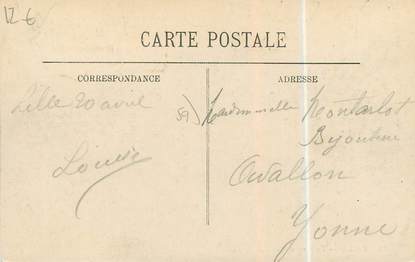 12€
CARTE POSTALE
CORRESPONDANCE
ADRESSE
Lille 20 avril
Louise
59)
Mademoiselle Montarlot
Bijouterie
Avallon
Yonne